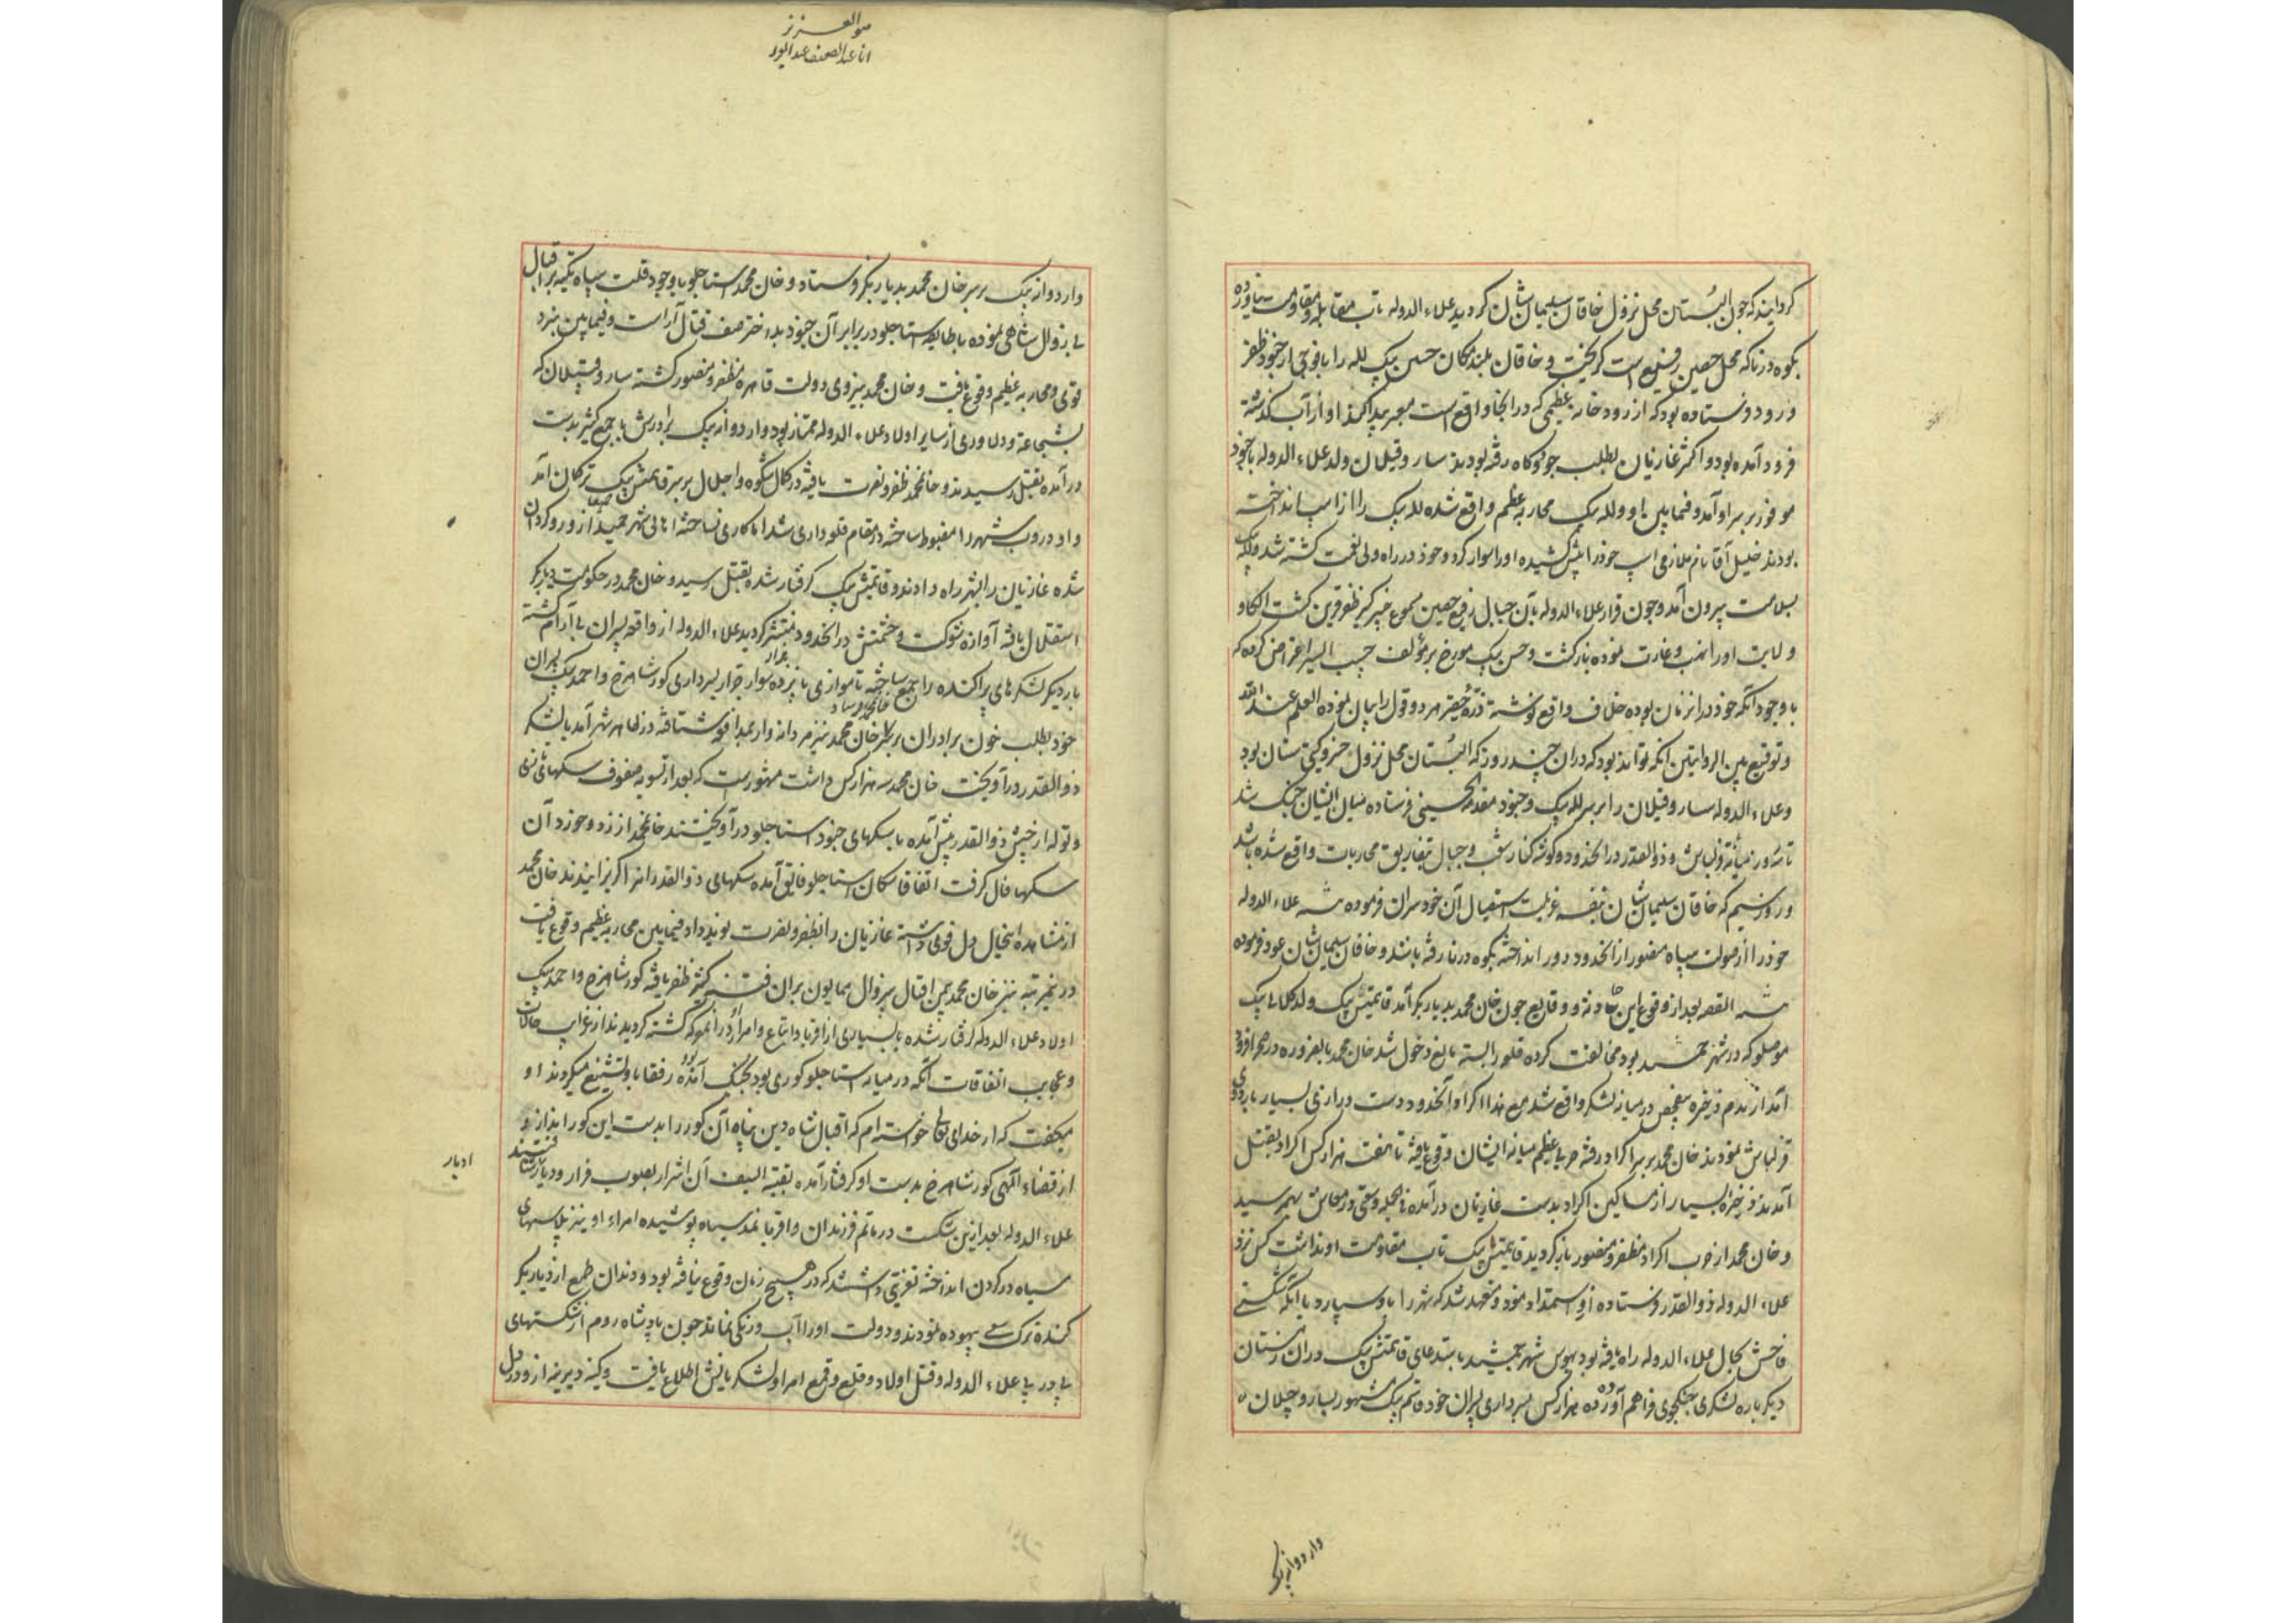 کردانیدکه جون البُستان محل نزول خاقان سلیمان شان کردید علاء الدوله تاب مقابله و مقاومت نیاورده
بکوه درنا که محل حصین رفیع است کریخت و خاقان بلند مکان حسین بیک لله را با فوجی از جنود ظفر
ورود فرستاده بود که از رودخانه عظیمی که در انجا واقع است معبر پیدا کند او از آب کذشته
فرود آمده بود و اکثر غازیان بطلب جو و کاه رفته بودند سارو قپلان ولد علاء الدوله با جنود
موفور بر سر او آمد و فیمابین او و لله بیک محاربه عظیم واقع شده لله بیک را از اسب انداخته
بودند خلیل آقا نام ملازمی اسب خود را پیش کشیده او را سوار کرد و خود در راه ولی نعمت کشته شد و لله بیک
بسلامت بیرون آمد و چون فرار علاء الدوله بآن جبال رفیع حصین مسموع خسرو ظفر قرین کشت الکا و
ولایت او را نهب و غارت نموده بازکشت و حسن بیک مورخ بر مؤلف حبیب السیر اعتراض کرده که
با وجود آنکه خود در آنزمان بوده خلاف واقع نوشته ذرّه حقیر هر دو قول را بیان نموده العلم عند الله
و توفیق بین الروایتین آنکه تواند بود که دران چند روز که البُستان محل نزول خسرو کیتی ستان بود
و علاء الدوله سارو قپلان را بر سر لله بیک و جنود مقدمة الجیش فرستاده میان ایشان جنک شد
تا سه روز میانه قزلباش و ذو القدر در انحدود و کوشه کنار شعب و جبال بتفاریق محاربات واقع شده باشد
و روز سیم که خاقان سلیمان شان بنفسه عزیمت استقبال آن خودسران فرموده شه علاء الدوله
خود را از صولت سپاه منصور از انحدود دور انداخته بکوه درنا رفته باشد و خاقان سلیمان شان عود فرموده
شه القصه بعد از وقوع این حادثه و وقایع چون خان محمد بدیاربکر آمد قایتمش بیک ولد کلابی بیک
موصلو که در شهر حمید بود مخالفت کرده قلعه را بسته مانع دخول شد خان محمد بالضروره در صحرا فرود
آمد از عدم ذخیره قحط در میان لشکر واقع شد مع هذا اکراد آنحدود دست درازی بسیار باردوی
قزلباش نمودند خان محمد بر سر اکراد رفته حربی عظیم میانه ایشان وقوع یافته تا هفت هزار کس اکراد بقتل
آمدند ذخیره بسیار از مساکین اکراد بدست غازیان درآمده فی الجمله وسعتی در معاش بهم رسید
و خان محمد از حرب اکراد مظفر و منصور باز کردید قایتمش بیک تاب مقاومت او نداشت کس نزد
علاء الدوله ذو القدر فرستاده ازو استمداد نمود و متعهد شد که شهر را باو سپارد با آنکه شکستی
فاحش بحال علاء الدوله راه یافته بود بهوس شهر حمید باستدعای قایتمش بیک دران زمستان
دیکر باره لشکری جنکجوی فراهم آورده ده هزار کس بسرداری پسران خود قاسم بیک مشهور بسارو قپلان
واردوانه بیک
هو العزیز
وارد وانه بیک بر سر خان محمد بدیاربکر فرستاد و خان محمد استاجلو با وجود قلت سپاه تکیه بر اقبال
بی زوال شاهی نموده با طایفه استاجلو در برابر آن جنود بد اختر صف قتال آراست و فیمابین نبرد
قوی و محاربه عظیم وقوع یافت و خان محمد بنیروی دولت قاهره مظفر و منصور کشته سارو قپلان که
بشجاعت و دلاوری از سایر اولاد علاء الدوله ممتاز بود وارد وانه بیک برادرش با جمع کثیر بدست
درآمده بقتل رسیدند و خان محمد ظفر و نصرت یافته در کمال شکوه و اجلال بر سر قایتمش بیک ترکمان آمد
و او دروب شهر را مضبوط ساخته در مقام قلعه داری شد اما کاری نساخته اهالی شهر حمید ازو رو کردان
شده غازیان را بشهر راه دادند و قایتمش بیک کرفتار شده بقتل رسید و خان محمد در حکومت دیاربکر
استقلال یافته آوازه شوکت و حشمتش در انحدود منتشر کردید علاء الدوله از واقعه پسران بی آرام کشته
بار دیکر لشکرهای پراکنده را جمع ساخته تا موازی پانزده هزار سوار جرار بسرداری کور شاهرخ و احمد بیک پسران
خود بطلب خون برادران بر سر خان محمد فرستاد خان محمد نیز مردانه وار بمدافعه شتافته در ظاهر شهر آمد با لشکر
ذو القدر درآویخت خان محمد سه هزار کس داشت مشهورست که بعد از تسویه صفوف سکهای
و توله از جیش ذو القدر پیش آمده با سکهای جنود استاجلو درآویختند خان محمد از زد و خورد آن
سکها فال کرفت اتفاقا سکان استاجلو فایق آمده سکهای ذو القدر را کریزانیدند خان محمد
از مشاهده اینحال دل قوی داشته غازیان را بظفر و نصرت نوید داد فیمابین محاربه عظیم وقوع یافت
درین مرتبه نیز خان محمد بیمن اقبال بیزوال همایون بران فئه کثیر ظفر یافته کور شاهرخ و احمد بیک
اولاد علاء الدوله کرفتار شده با بسیاری از اقربا و اتباع و امرا دران معرکه کشته کردیدند از غرایب حالات
و عجایب اتفاقات آنکه در میانه استاجلو کوری بود بجنک آمده بود رفقا باو تشنیع میکردند او
میکفت که از خدای تعالی خواسته ام که اقبال شاه دین پناه آن کور را بدست این کور اندازد
از قضاء الهی کور شاهرخ بدست او کرفتار آمده بقیة السیف آن اشرار بصوب فرار و دیار ادبار شتافتند
ادبار
علاء الدوله بعد ازین شکست در ماتم فرزندان و اقربا نمد سیاه پوشیده امراء او نیز پلاسهای
سیاه در کردن انداخته تعزیتی داشتند که در هیچ زمان وقوع نیافته بود و دندان طمع از دیاربکر
کنده ترک سعی بیهوده نمودند و دولت او را آب و رنکی نماند چون پادشاه روم از شکستهای
پی در پی علاء الدوله و قتل اولاد و قلع و قمع امرا و لشکریانش اطلاع یافت و کینه دیرینه ازو در دل